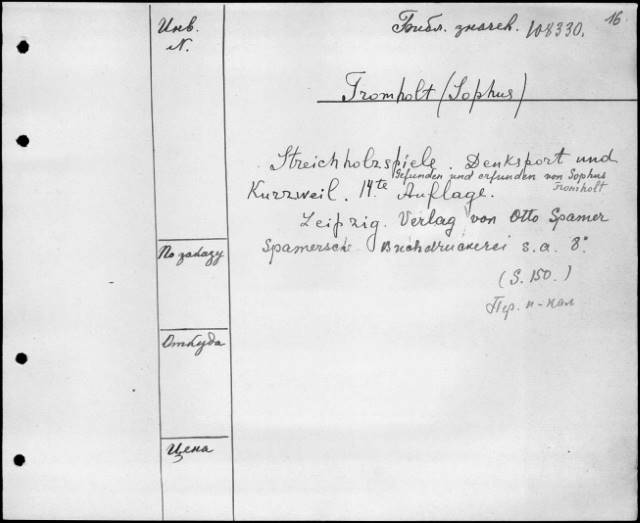 16.
Инв. N.
Библ. значек. 108330.
Fromholt (Sophus)
Streichholzspiele. Denksport und
Gefunden und erfunden von Sophus Fromholt
Kurzweil. 14.te Auflage.
Leipzig. Verlag von Otto Spamer
Spamersche Buchdruckerei s.a. 8°.
(S. 150.)
Пер. к-кол
По заказу
Откуда
Цена